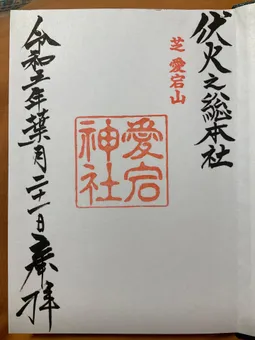 伏火之総本社
芝愛宕山
愛宕
神社
令和五年葉月二十一日奉拝